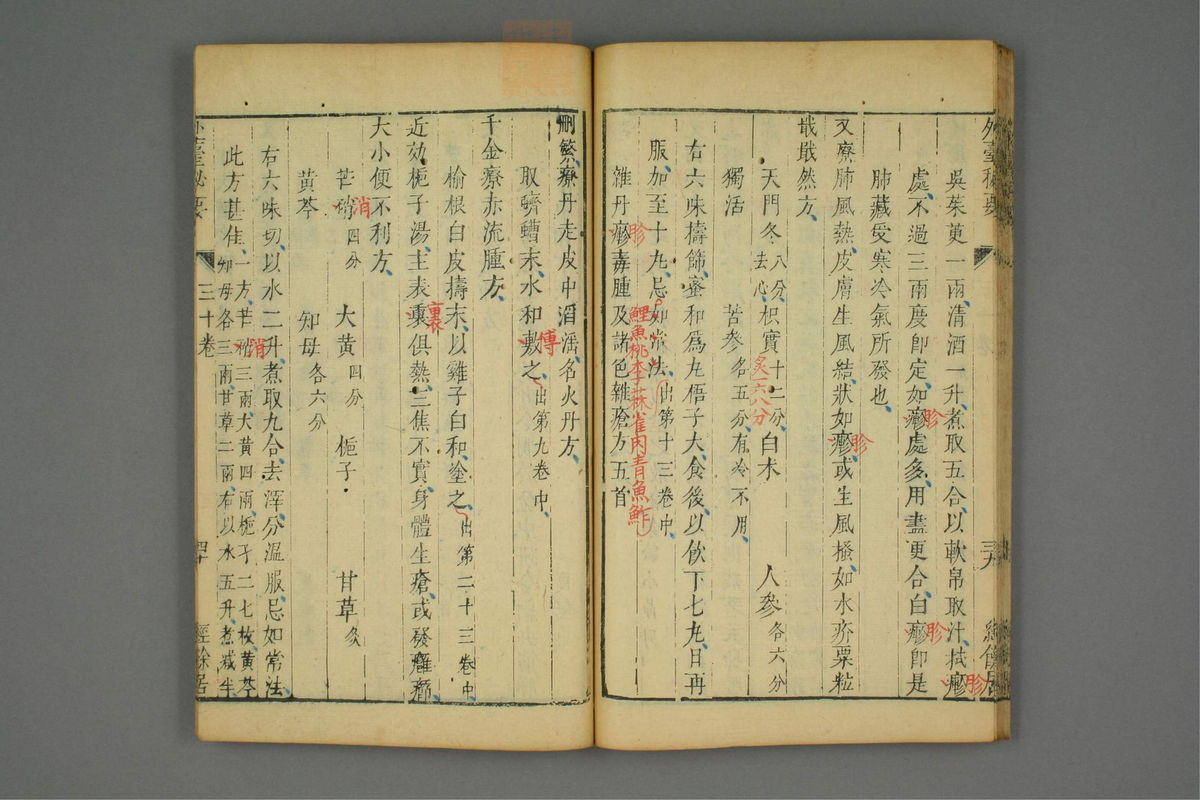 外臺秘要
三九
經餘居
吳茱萸一兩清酒一升煮取五合以軟帛取汁拭㾐
胗
處不過三兩度即定如㾐處多用盡更合白㾐即是
胗
胗
肺藏受寒冷氣所發也
又療肺風熱皮膚生風結狀如㾐或生風搔如水疥粟粒
胗
戢戢然方
天門冬八分去心 枳實十二分 白朮 人參各六分
炙六八分
獨活 苦參各五分有冷不用
右六味擣篩蜜和爲丸梧子大食後以飲下七丸日再
服加至十丸忌如常法出第十三卷中
鯉魚桃李蒜雀肉青魚鮓
雜丹㾐毒腫及諸色雜瘡方五首
胗
刪繁療丹走皮中淊淊名火丹方
取蠐螬末水和敷之出第九卷中
傅
千金療赤流腫方
榆根白皮擣末以雞子白和塗之出第二十三卷中
近効梔子湯主表裏俱熱三焦不實身體生瘡或發癰癤
裏
大小便不利方
芒硝四分 大黃四分 梔子 甘草炙
消
黃芩 知母各六分
右六味切以水二升煮取九合去滓分溫服忌如常法
此方甚佳一方芒硝三兩大黃四兩梔子二七枚黃芩
知母各三兩甘草二兩右以水五升煮減半
消
外臺秘要
三十卷
四十
經餘居